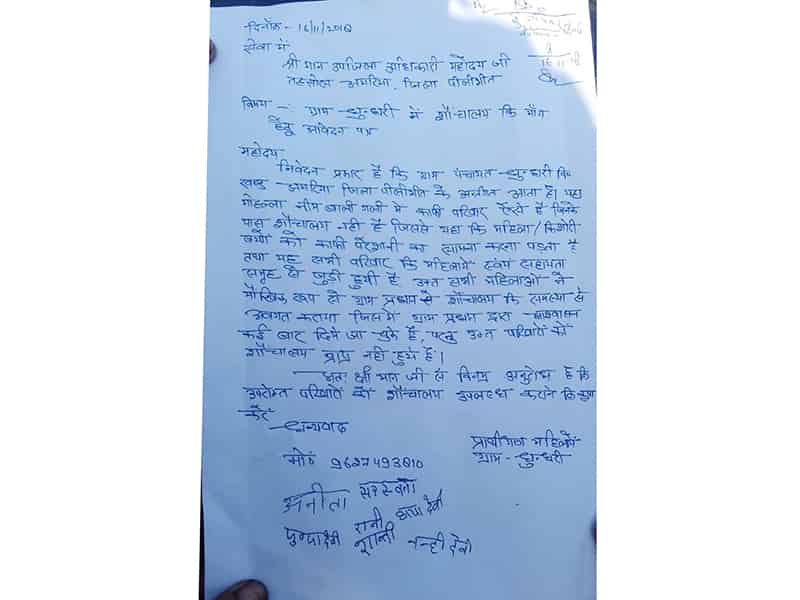 दिनाँक - 16/11/2018
सेवा में
श्री मान उपजिला अधिकारी महोदय जी
तहसील अमरिया, जिला पीलीभीत
16 11
विषय -: ग्राम - धुन्धरी में शौचालय कि माँग
हेतु आवेदन पत्र
महोदय
निवेदन प्रकार है कि ग्राम पंचायत - धुन्धरी वि०
खण्ड - अमरिया जिला पीलीभीत के अन्तर्गत आता है। यहा
मोहल्ला नीम वाली गली में काफी परिवार ऐसे है जिनके
पास शौचालय नही है जिससे यहा कि महिला/किशोरी
बच्चों को काफी परेशानी का सामना करना पड़ता है
तथा यह सभी परिवार कि महिलायें स्वयं सहायता
समूह से जुडी हुयी है उक्त सभी महिलाओं ने
मौखिक रूप से ग्राम प्रधान से शौचालय कि समस्या से
अवगत कराया जिसमें ग्राम प्रधान द्वारा आश्वासन
कई बार दिये जा चुके है, परन्तु उक्त परिवारों को
शौचालय प्राप्त नही हुये है।
अतः श्री मान जी से विनम्र अनुरोध है कि
उपरोक्त परिवारों को शौचालय उपलब्ध कराने कि कृपा
करें
धन्यवाद
प्रार्थीगण महिलायें
ग्राम - धुन्धरी
मो० 9627493810
अनीता सरस्वती
रानी देवी
पुष्पादेवी शान्ती नन्ही देवी